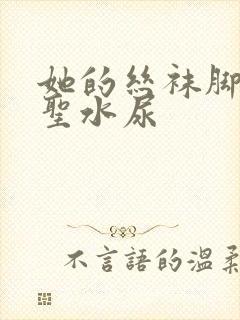 她的絲袜脚
聖水尿
不言語的温柔